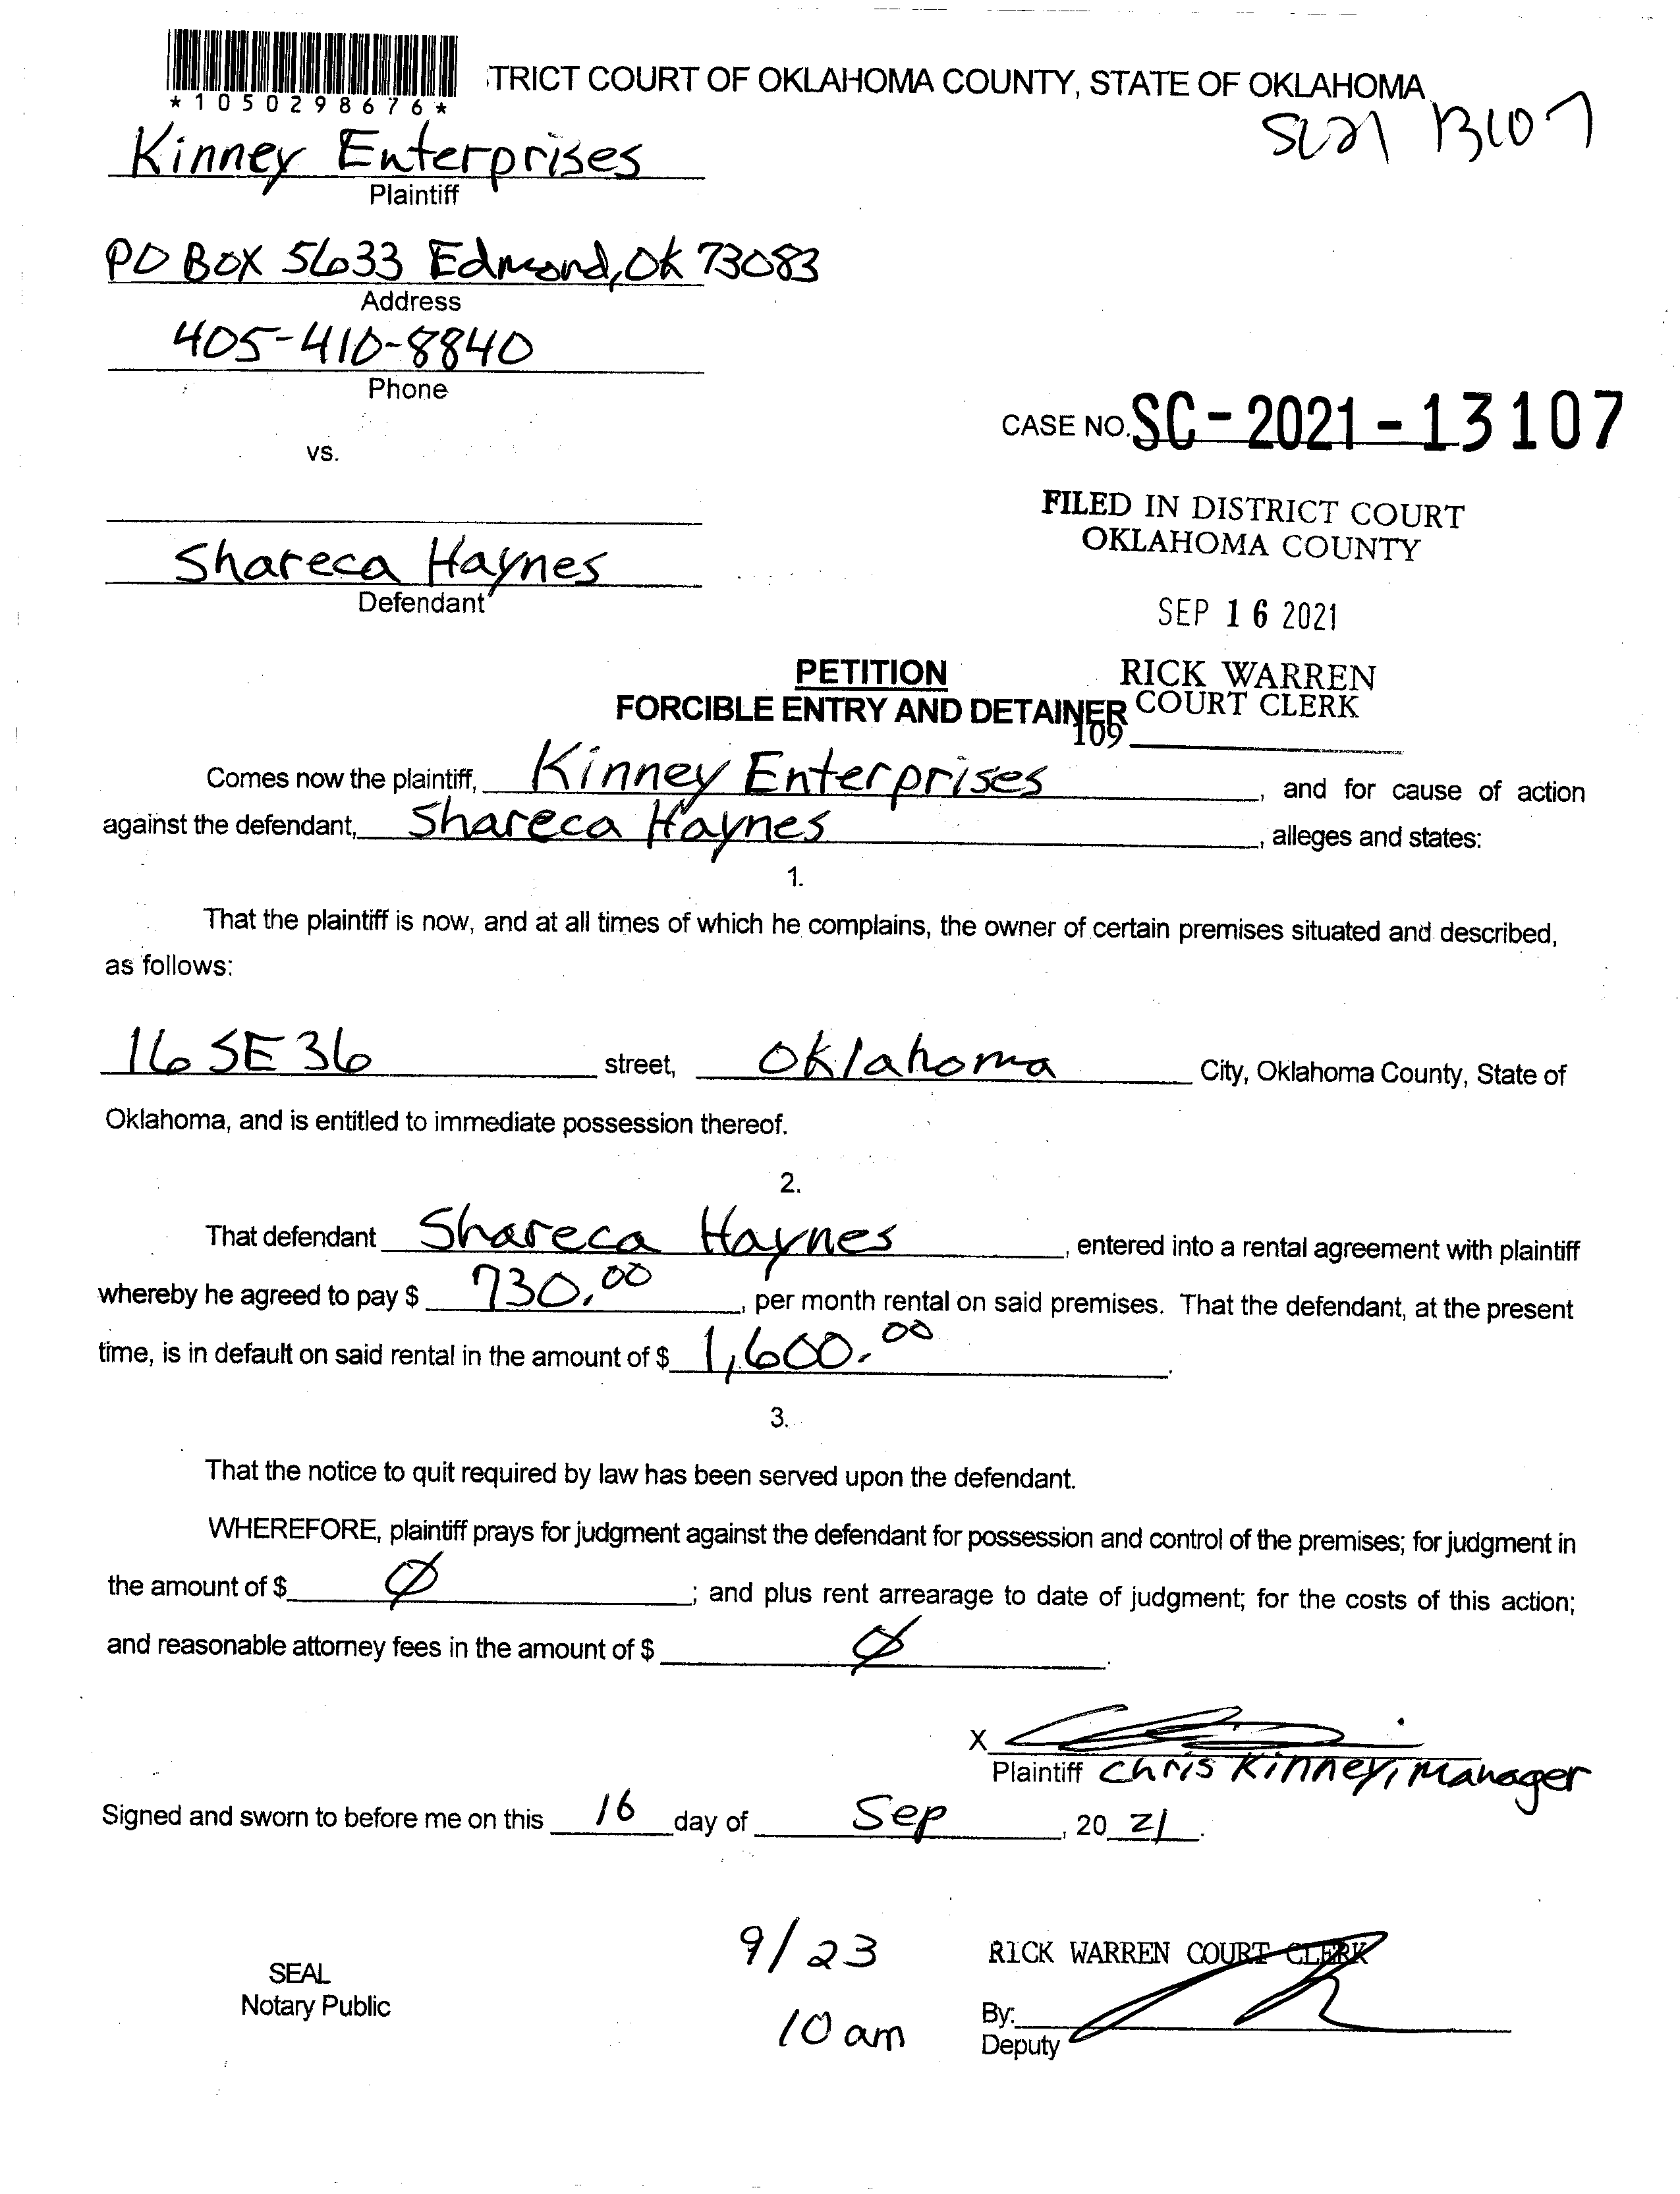 *1050298676*
TRICT COURT OF OKLAHOMA COUNTY, STATE OF OKLAHOMA
SC21 13107
Kinney Enterprises
Plaintiff
PO BOX 5633 Edmond, OK 73083
Address
405-410-8840
Phone
CASE NO. SC-2021-13107
vs.
FILED IN DISTRICT COURT
OKLAHOMA COUNTY
Shareca Haynes
Defendant
SEP 16 2021
PETITION
RICK WARREN
FORCIBLE ENTRY AND DETAINER
COURT CLERK
109
Comes now the plaintiff, Kinney Enterprises, and for cause of action
against the defendant, Shareca Haynes, alleges and states:
1.
That the plaintiff is now, and at all times of which he complains, the owner of certain premises situated and described,
as follows:
16 SE 36 street, Oklahoma City, Oklahoma County, State of
Oklahoma, and is entitled to immediate possession thereof.
2.
That defendant Shareca Haynes, entered into a rental agreement with plaintiff
whereby he agreed to pay $ 730.00, per month rental on said premises. That the defendant, at the present
time, is in default on said rental in the amount of $ 1,600.00.
3.
That the notice to quit required by law has been served upon the defendant.
WHEREFORE, plaintiff prays for judgment against the defendant for possession and control of the premises; for judgment in
the amount of $ Ø; and plus rent arrearage to date of judgment; for the costs of this action;
and reasonable attorney fees in the amount of $ Ø.
X
Plaintiff Chris Kinney, Manager
Signed and sworn to before me on this 16 day of Sep, 20 21.
9/23
RICK WARREN COURT CLERK
SEAL
Notary Public
10 am
By:
Deputy